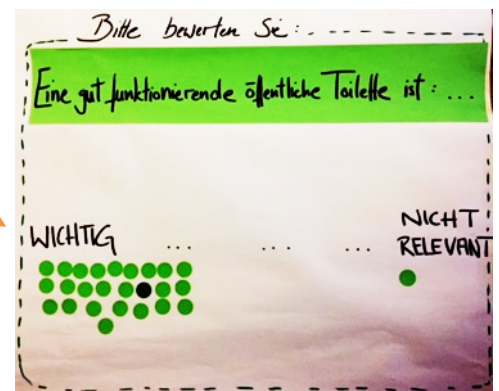 Bitte bewerten Sie:
Eine gut funktionierende öffentliche Toilette ist: ...
WICHTIG ... ... ... NICHT
RELEVANT